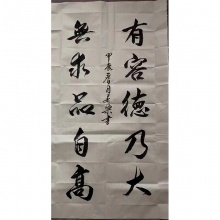 有容德乃大
無求品自高
甲辰春月